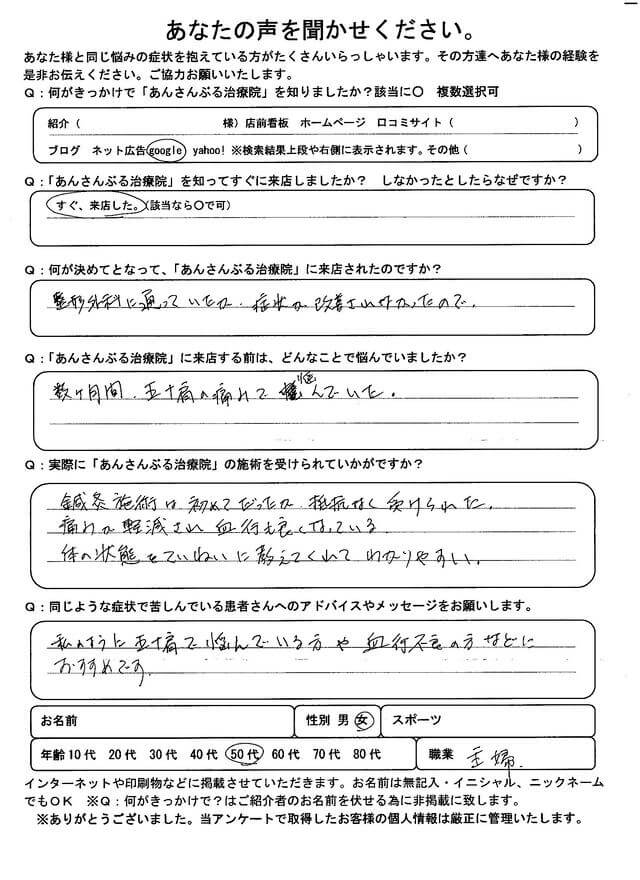 あなたの声を聞かせください。
あなた様と同じ悩みの症状を抱えている方がたくさんいらっしゃいます。その方達へあなた様の経験を
是非お伝えください。ご協力お願いいたします。
Q：何がきっかけで「あんさんぶる治療院」を知りましたか？該当に〇　複数選択可
紹介（　　　　　　　　　　様）店前看板　ホームページ　口コミサイト（　　　　　　　　　）
ブログ　ネット広告　google　yahoo! ※検索結果上段や右側に表示されます。その他（　　　　　　　　）
Q：「あんさんぶる治療院」を知ってすぐに来店しましたか？　しなかったとしたらなぜですか？
すぐ、来店した。（該当なら〇で可）
Q：何が決めてとなって、「あんさんぶる治療院」に来店されたのですか？
整形外科に通っていたが、症状が改善されなかったので。
Q：「あんさんぶる治療院」に来店する前は、どんなことで悩んでいましたか？
数ヶ月間、五十肩の痛みで悩んでいた。
Q：実際に「あんさんぶる治療院」の施術を受けられていかがですか？
鍼灸施術は初めてだったが、抵抗なく受けられた。
痛みが軽減され血行も良くなっている
体の状態をていねいに教えてくれてわかりやすい。
Q：同じような症状で苦しんでいる患者さんへのアドバイスやメッセージをお願いします。
私のように五十肩で悩んでいる方や血行不良の方などに
おすすめです。
お名前　性別 男 女　スポーツ
年齢10代　20代　30代　40代　50代　60代　70代　80代　職業　主婦
インターネットや印刷物などに掲載させていただきます。お名前は無記入・イニシャル、ニックネーム
でもOK　※Q：何がきっかけで？はご紹介者のお名前を伏せる為に非掲載に致します。
※ありがとうございました。当アンケートで取得したお客様の個人情報は厳正に管理いたします。